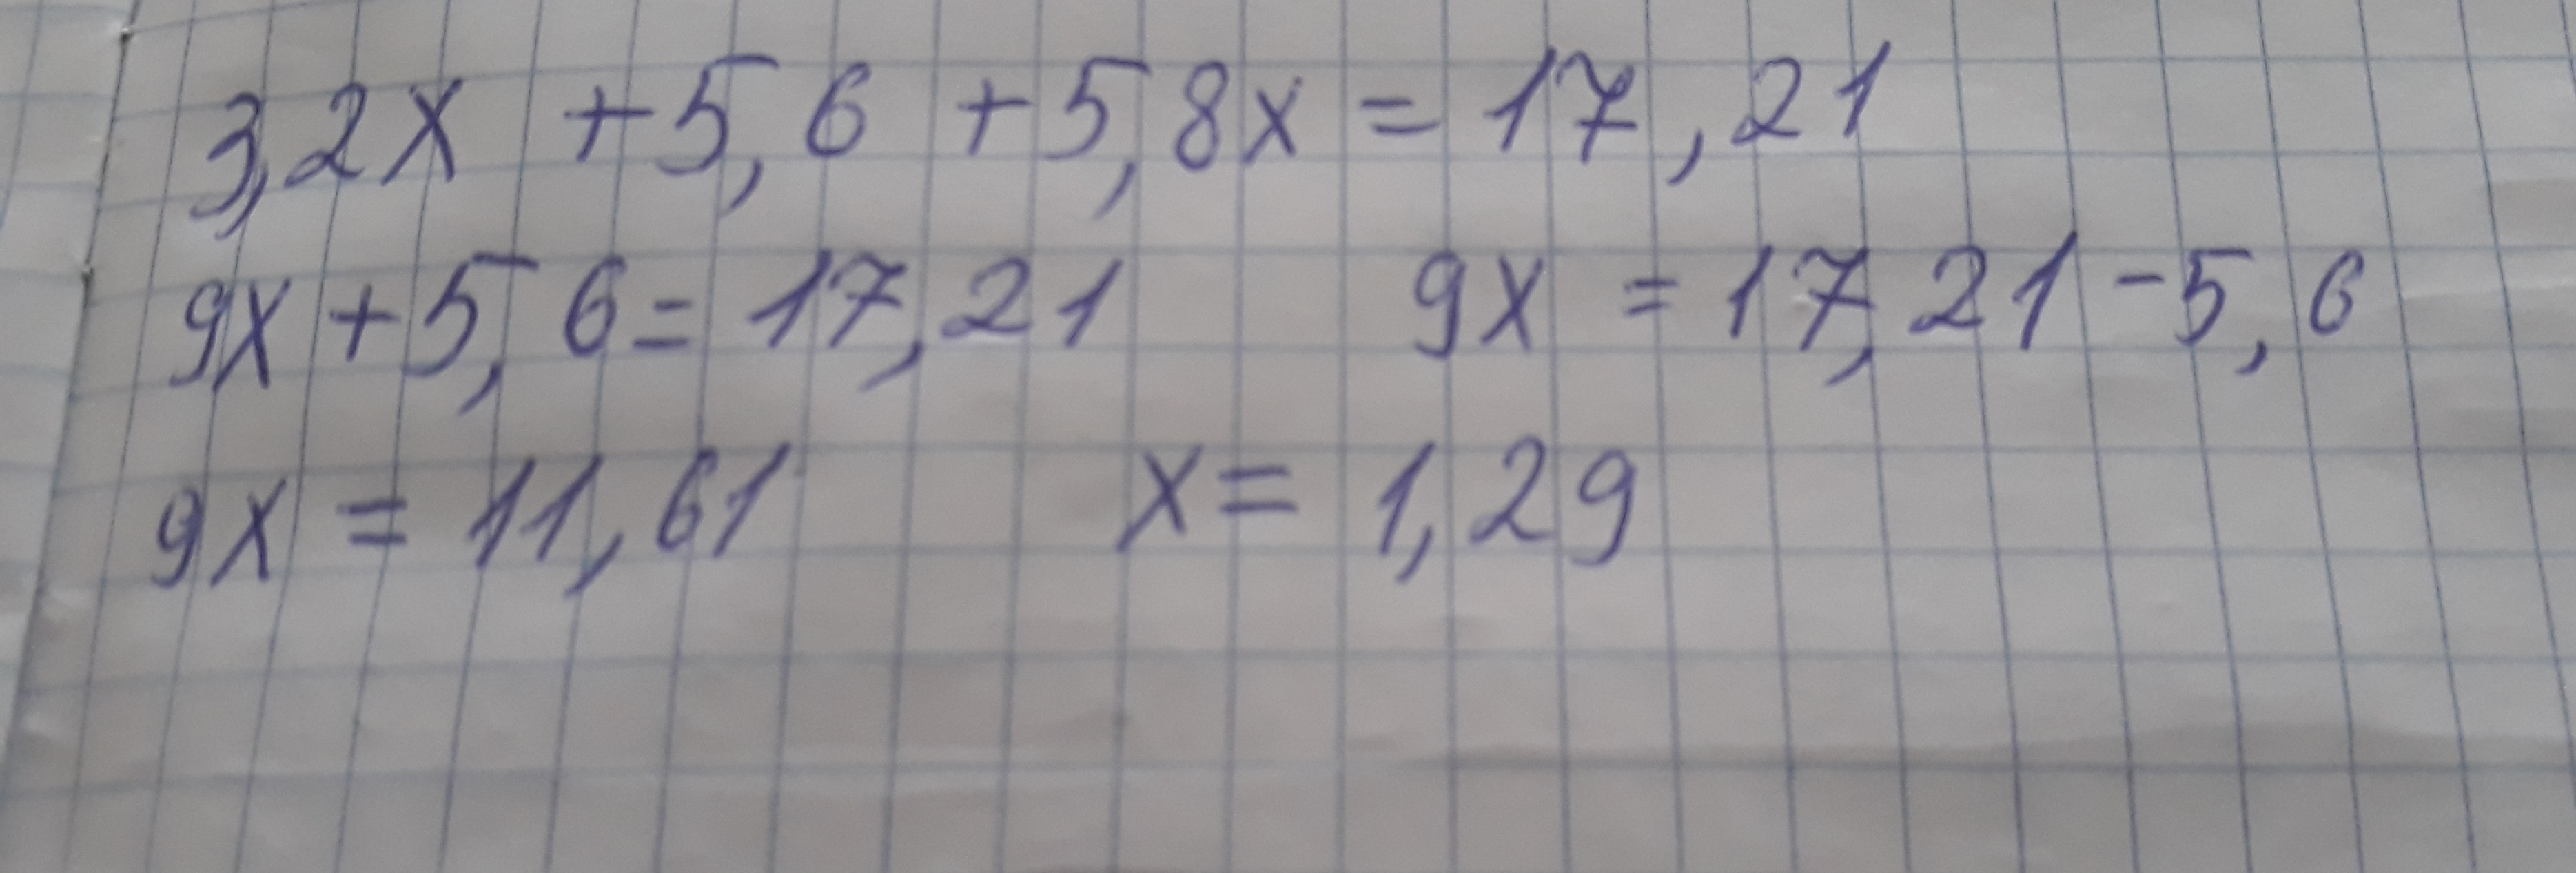 3,2x + 5,6 + 5,8x = 17,21
9x + 5,6 = 17,21 9x = 17,21 - 5,6
9x = 11,61 x = 1,29